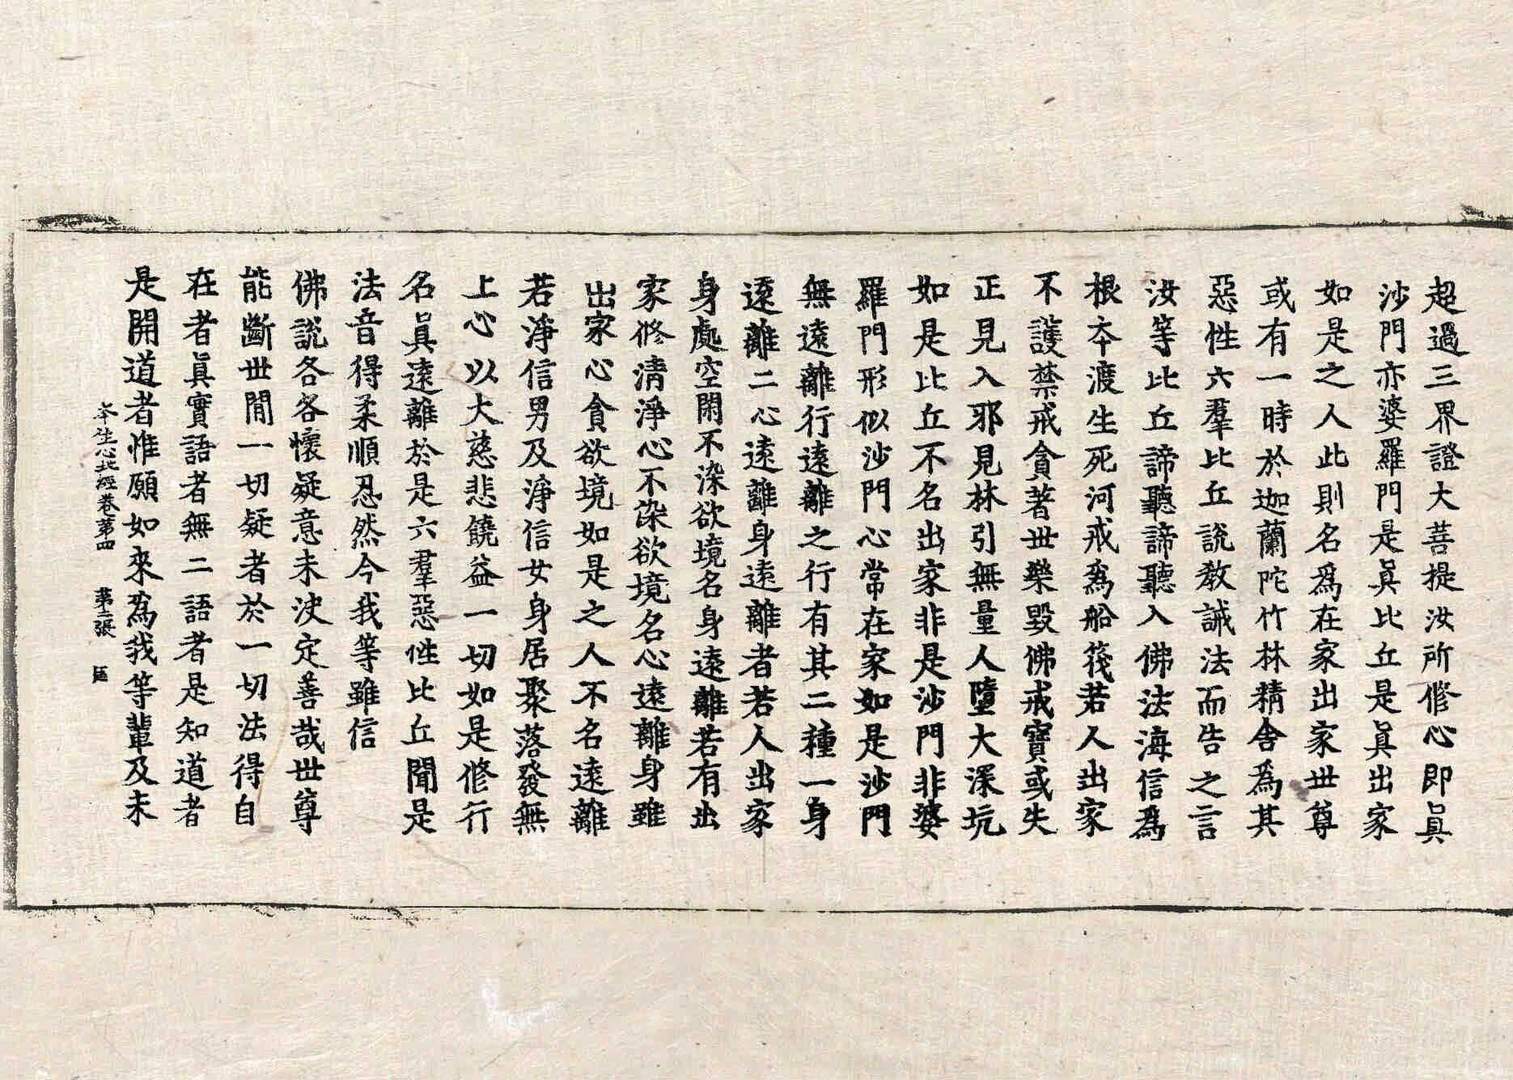 超過三界證大菩提汝所修心即眞
沙門亦婆羅門是眞比丘是眞出家
如是之人此則名爲在家出家世尊
或有一時於迦蘭陀竹林精舍爲其
惡性六羣比丘說教誡法而告之言
汝等比丘諦聽諦聽入佛法海信爲
根本渡生死河戒爲船筏若人出家
不護禁戒貪著世樂毀佛戒寶或失
正見入邪見林引無量人墮大深坑
如是比丘不名出家非是沙門非婆
羅門形似沙門心常在家如是沙門
無遠離行遠離之行有其二種一身
遠離二心遠離身遠離者若人出家
身處空閑不染欲境名身遠離若有出
家修清淨心不染欲境名心遠離身雖
出家心貪欲境如是之人不名遠離
若淨信男及淨信女身居聚落發無
上心以大慈悲饒益一切如是修行
名眞遠離於是六羣惡性比丘聞是
法音得柔順忍然今我等雖信
佛說各各懷疑意未決定善哉世尊
能斷世間一切疑者於一切法得自
在者眞實語者無二語者是知道者
是開道者惟願如來爲我等輩及未
本生心地經卷第四 第二張